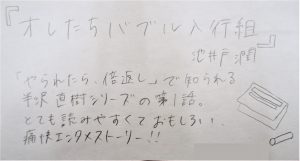 『オレたちバブル入行組』
池井戸 潤
「やられたら、倍返し」で知られる
半沢直樹シリーズの第1話。
とても読みやすくておもしろい、
痛快エンタメストーリー!!